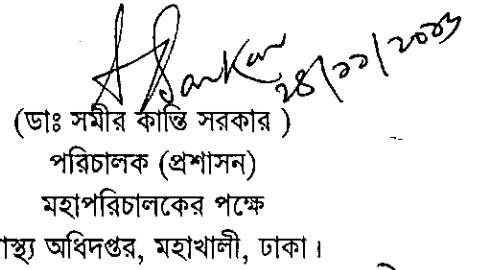 (ডাঃ সমীর কান্তি সরকার )
পরিচালক (প্রশাসন)
মহাপরিচালকের পক্ষে
াস্থ্য অধিদপ্তর, মহাখালী, ঢাকা।